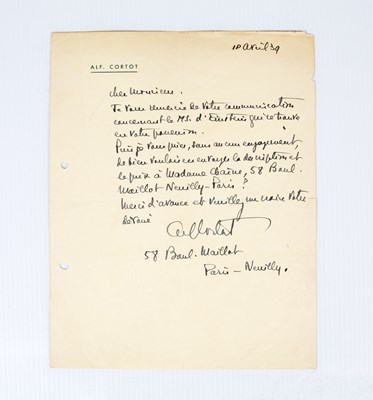 18 avril 39
ALF. CORTOT
Cher Monsieur.
Je vous remercie de votre communication
concernant le MS. d'Einstein qui se trouve
en votre possession.
Puis-je vous prier, sans aucun engagement,
de bien vouloir en envoyer la description et
le prix à Madame 58 Boul.
Maillot Neuilly-Paris?
Merci d'avance et veuillez me croire votre
dévoué
Alf Cortot
58 Boul. Maillot
Paris – Neuilly.